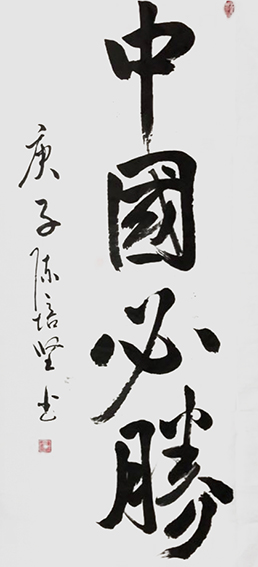 中國必勝
庚子陈培坚书